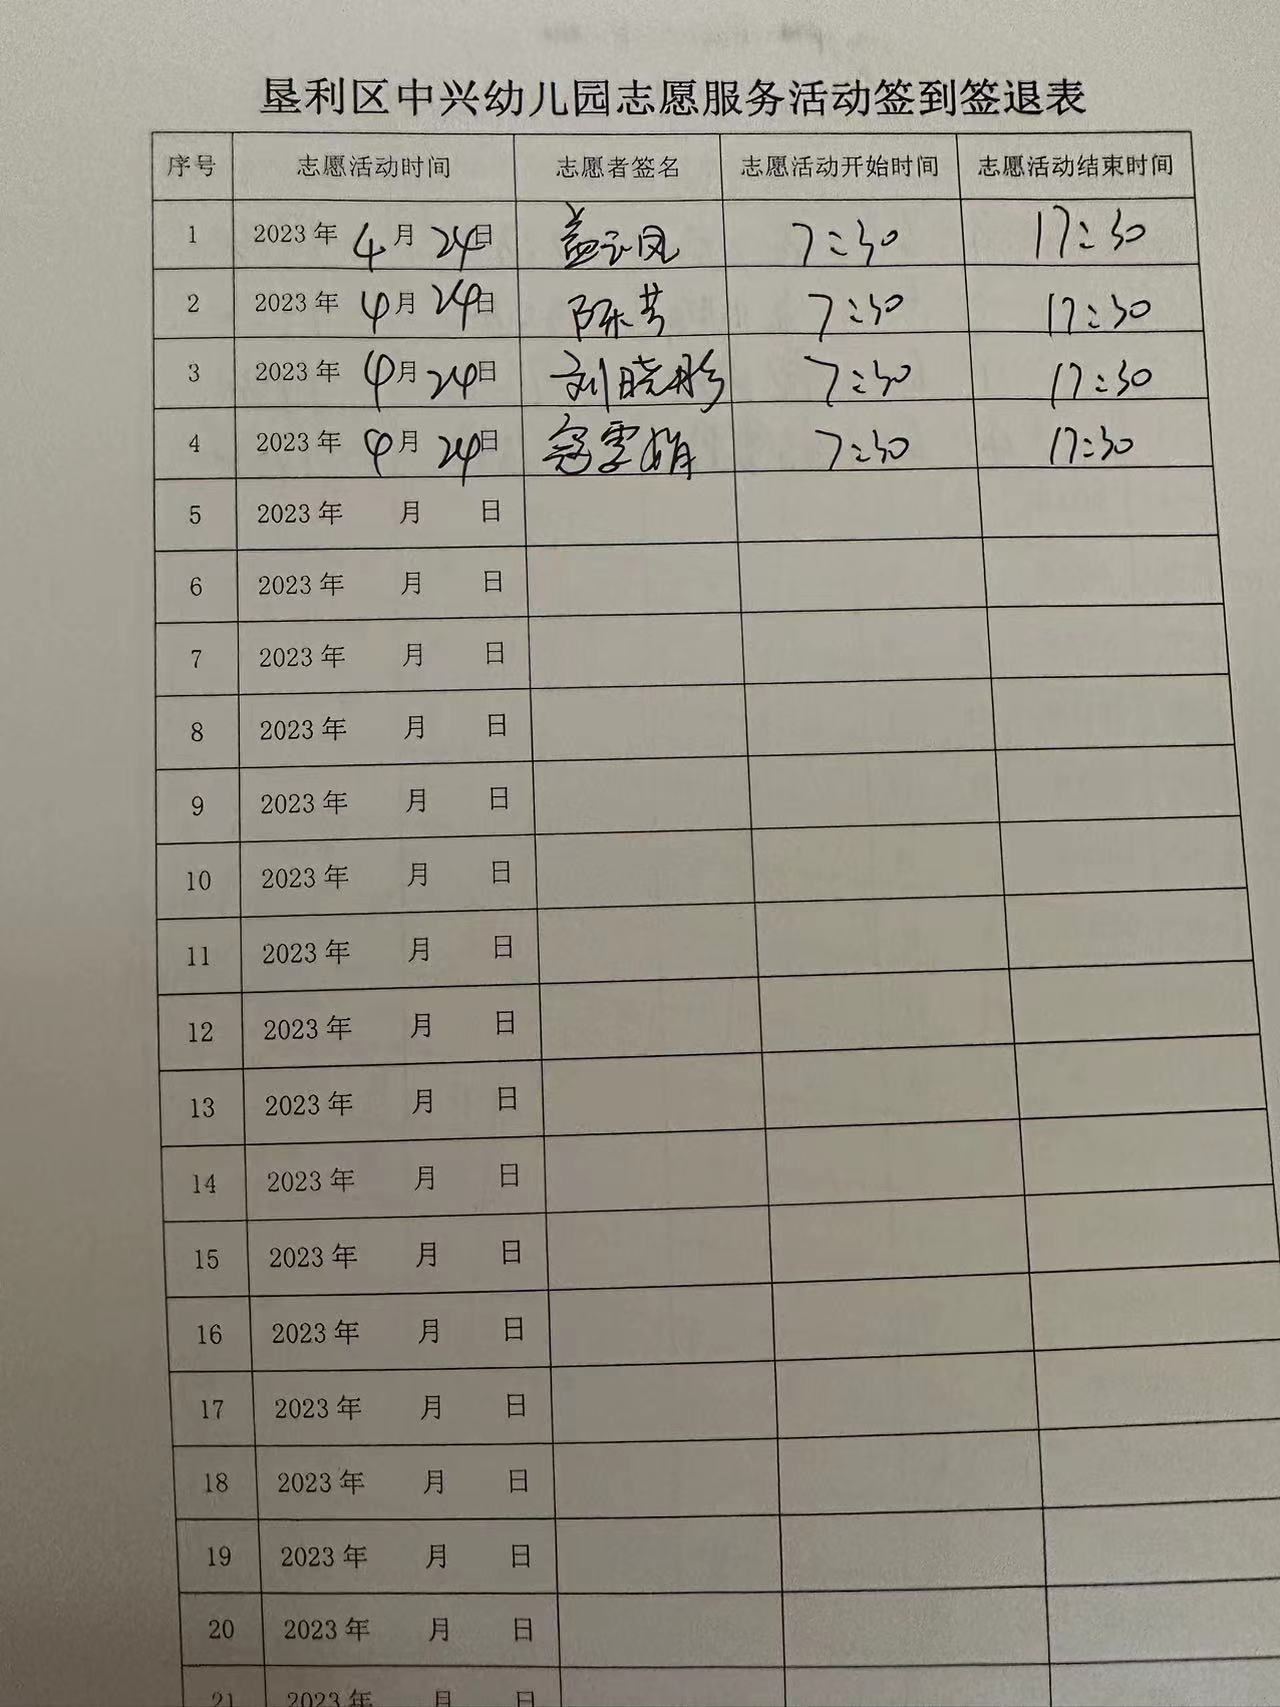 垦利区中兴幼儿园志愿服务活动签到签退表
序号 志愿活动时间 志愿者签名 志愿活动开始时间 志愿活动结束时间
1 2023年 4月 24日 盖云凤 7:30 17:30
2 2023年 4月 24日 陈芳 7:30 17:30
3 2023年 4月 24日 刘晓彤 7:30 17:30
4 2023年 4月 24日 寇雪娟 7:30 17:30
5 2023年 月 日
6 2023年 月 日
7 2023年 月 日
8 2023年 月 日
9 2023年 月 日
10 2023年 月 日
11 2023年 月 日
12 2023年 月 日
13 2023年 月 日
14 2023年 月 日
15 2023年 月 日
16 2023年 月 日
17 2023年 月 日
18 2023年 月 日
19 2023年 月 日
20 2023年 月 日
21 2023年 月 日